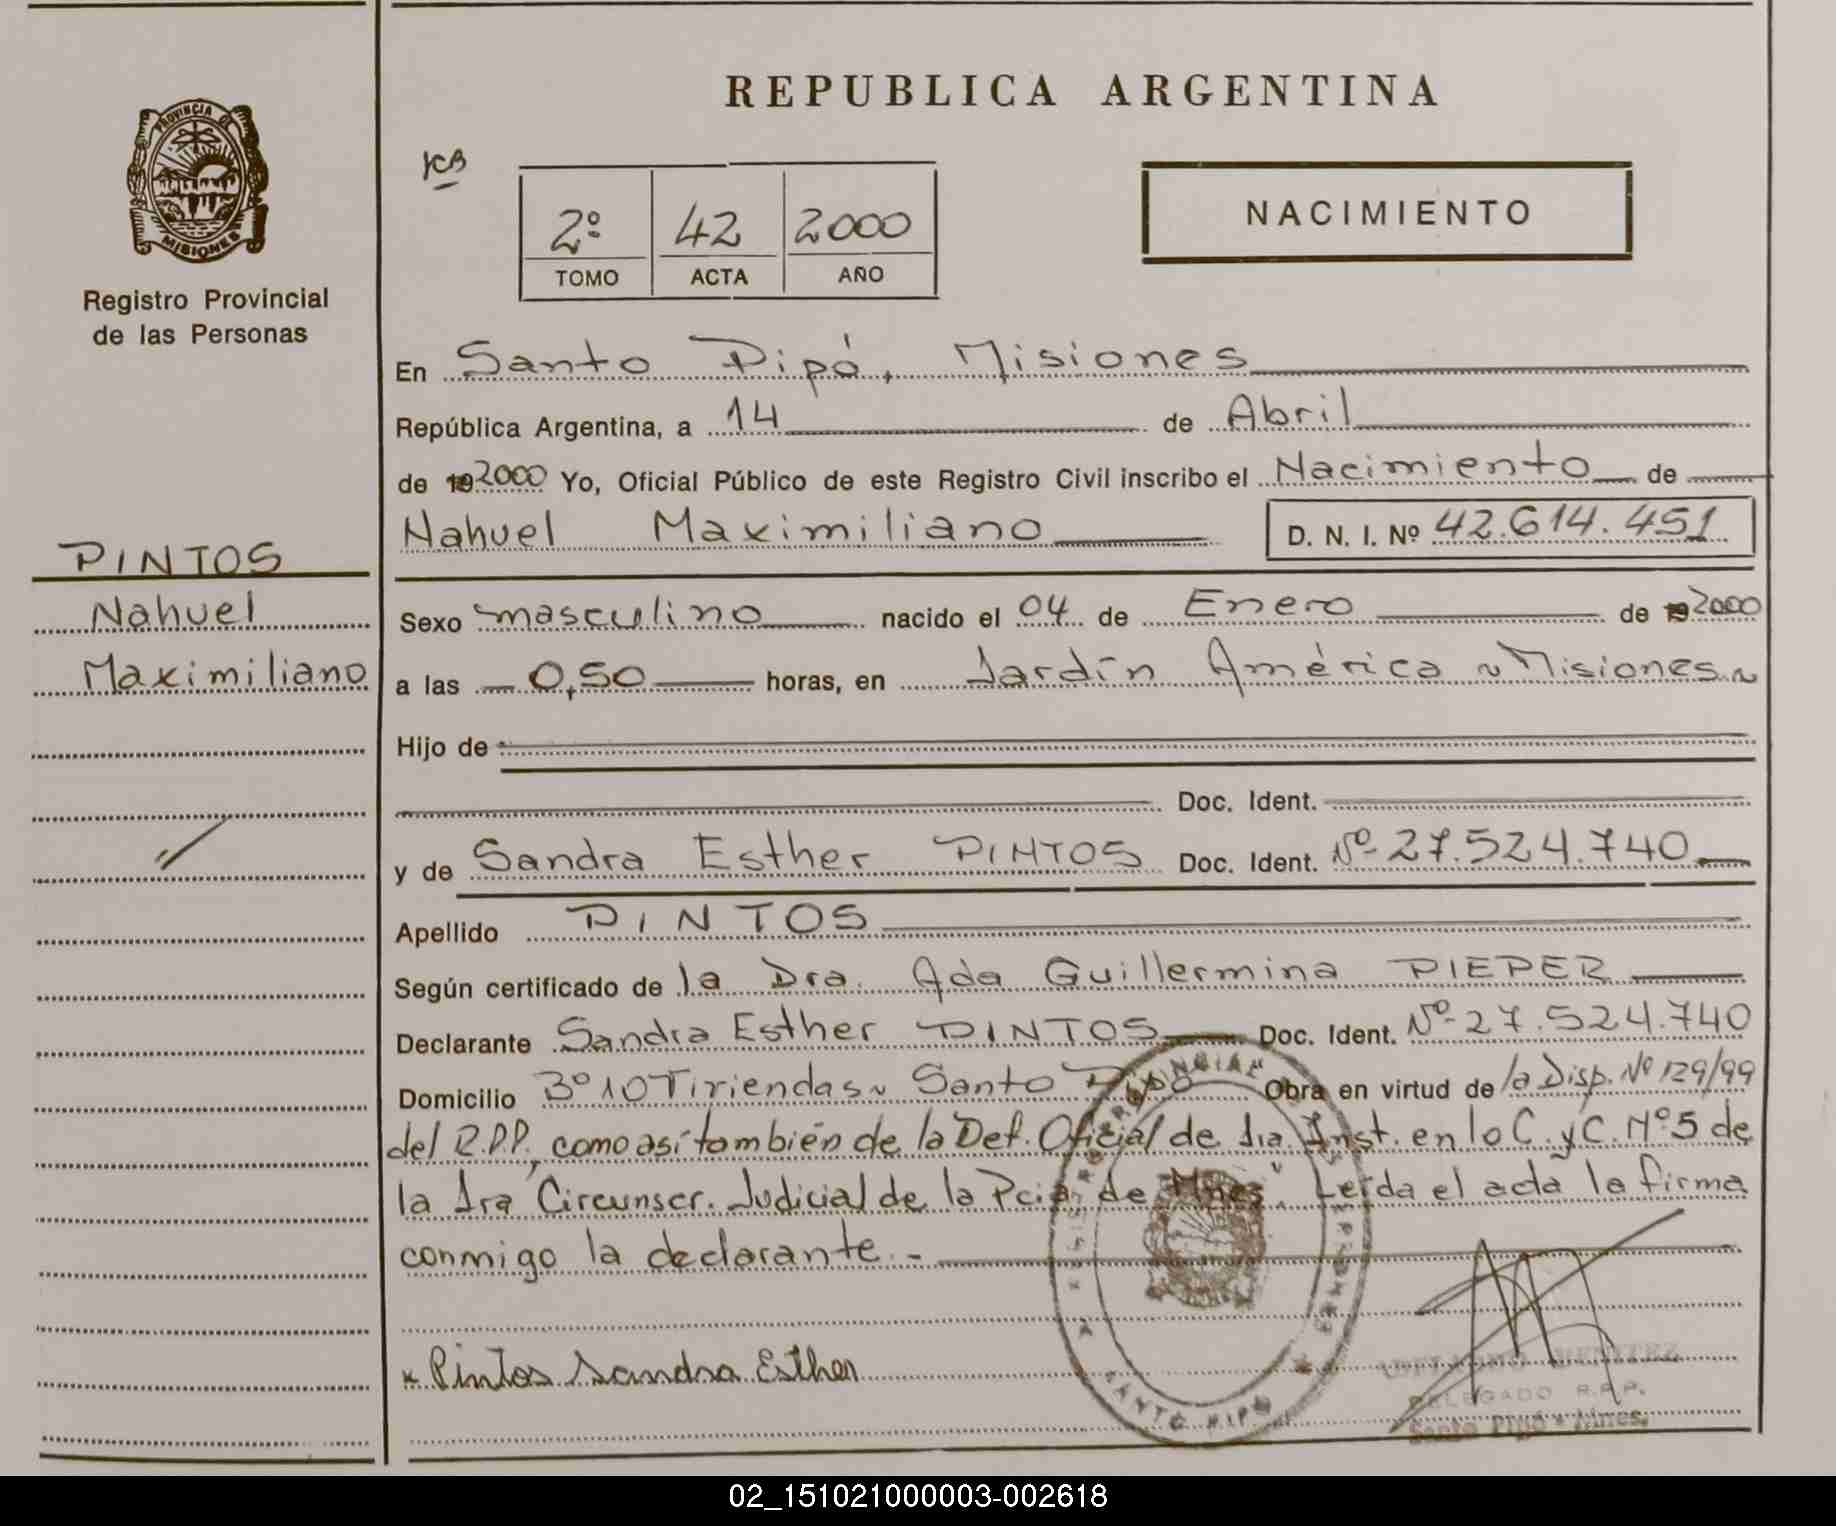 REPUBLICA ARGENTINA
PROVINCIA DE
MISIONES
Registro Provincial
de las Personas
2º 42 2000
TOMO ACTA AÑO
NACIMIENTO
En Santo Pipó, Misiones
República Argentina, a 14 de Abril
de 192000 Yo, Oficial Público de este Registro Civil inscribo el Nacimiento de
Nahuel Maximiliano D. N. I. Nº 42.614.451
PINTOS
Nahuel
Maximiliano
Sexo masculino nacido el 04 de Enero de 192000
a las 0,50 horas, en Jardín América ~ Misiones.~
Hijo de
Doc. Ident.
y de Sandra Esther PINTOS Doc. Ident. Nº 27.524.740
Apellido PINTOS
Según certificado de la Dra. Ada Guillermina PIEPER
Declarante Sandra Esther PINTOS Doc. Ident. Nº 27.524.740
Domicilio Bº 10 Tiriendas ~ Santo Pipó Obra en virtud de la Disp. Nº 129/99
del R.P.P., como así también de la Def. Oficial de 1ra. Inst. en lo C. y C. Nº 5 de
la 1ra Circunscr. Judicial de la Pcia de Mnes". Leída el acta la firma
conmigo la declarante.-
x Pintos Sandra Esther
SANTO PIPO
BENITEZ
DELEGADO R.P.P.
Santo Pipó - Mnes.
02_151021000003-002618